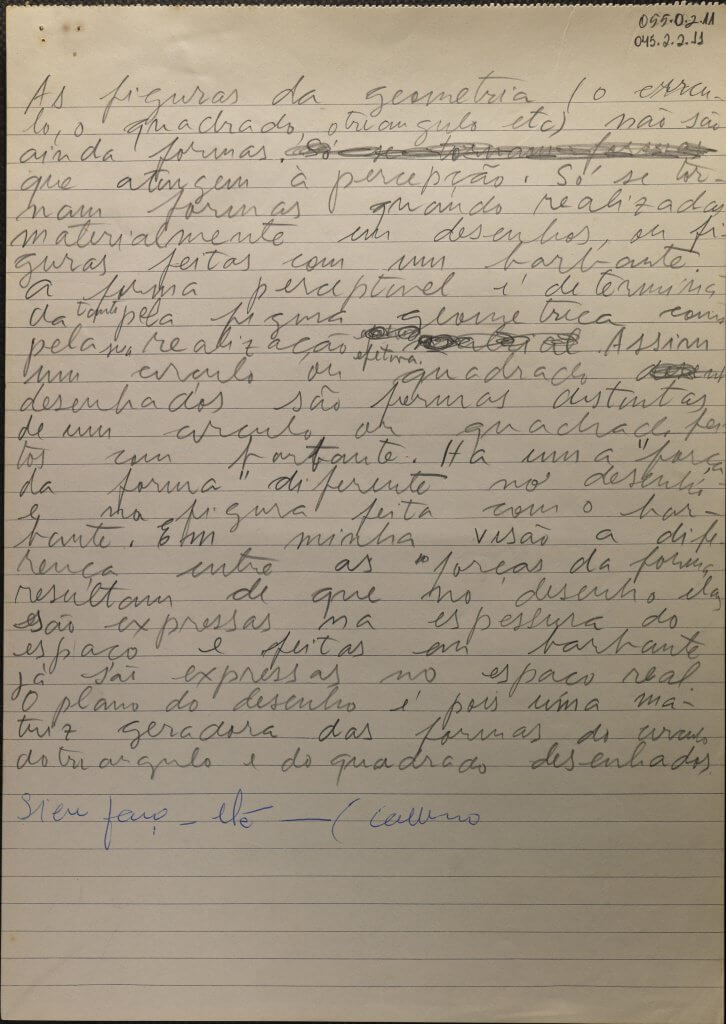 055.0.2.11
045.2.2.11
As figuras da geometria (o círcu-
lo, o quadrado, o triangulo etc) não são
ainda formas. Só se tornam formas
que atingem à percepção. Só se tor-
nam formas quando realizadas
materialmente em desenhos, ou fi-
guras feitas com um barbante.
A forma perceptivel é determina
da tanto pela figura geometrica como
pela realização
efetiva. Assim
um circulo ou quadrado
desenhados são formas distintas
de um circulo ou quadrado fei-
tos com barbante. Ha uma "força
da forma" diferente no desenho
e na figura feita com o bar-
bante. Em minha visão a dife-
rença entre as "forças da forma
resultam de que no desenho elas
são expressas na espessura do
espaço e feitas em barbante
já são expressas no espaço real
O plano do desenho é pois uma ma-
triz geradora das formas do circulo
do triangulo e do quadrado desenhados.